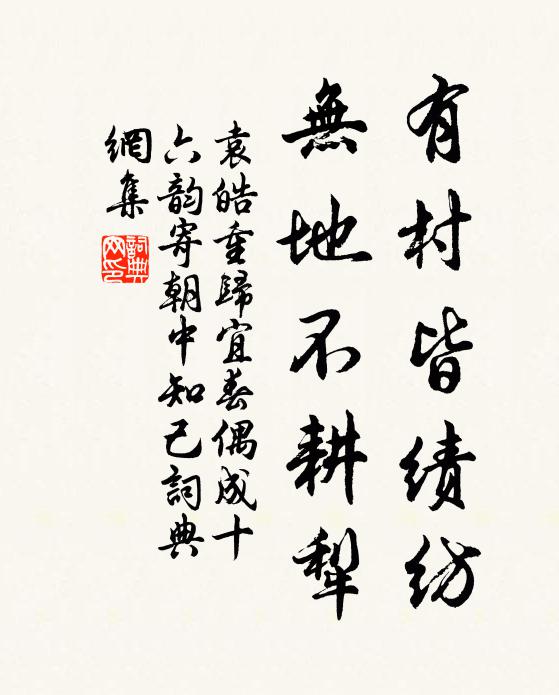 有村皆績紡
無地不耕犁
袁皓重歸宜春偶成十
六韵寄朝中知己詞典
網集
詞典
网印